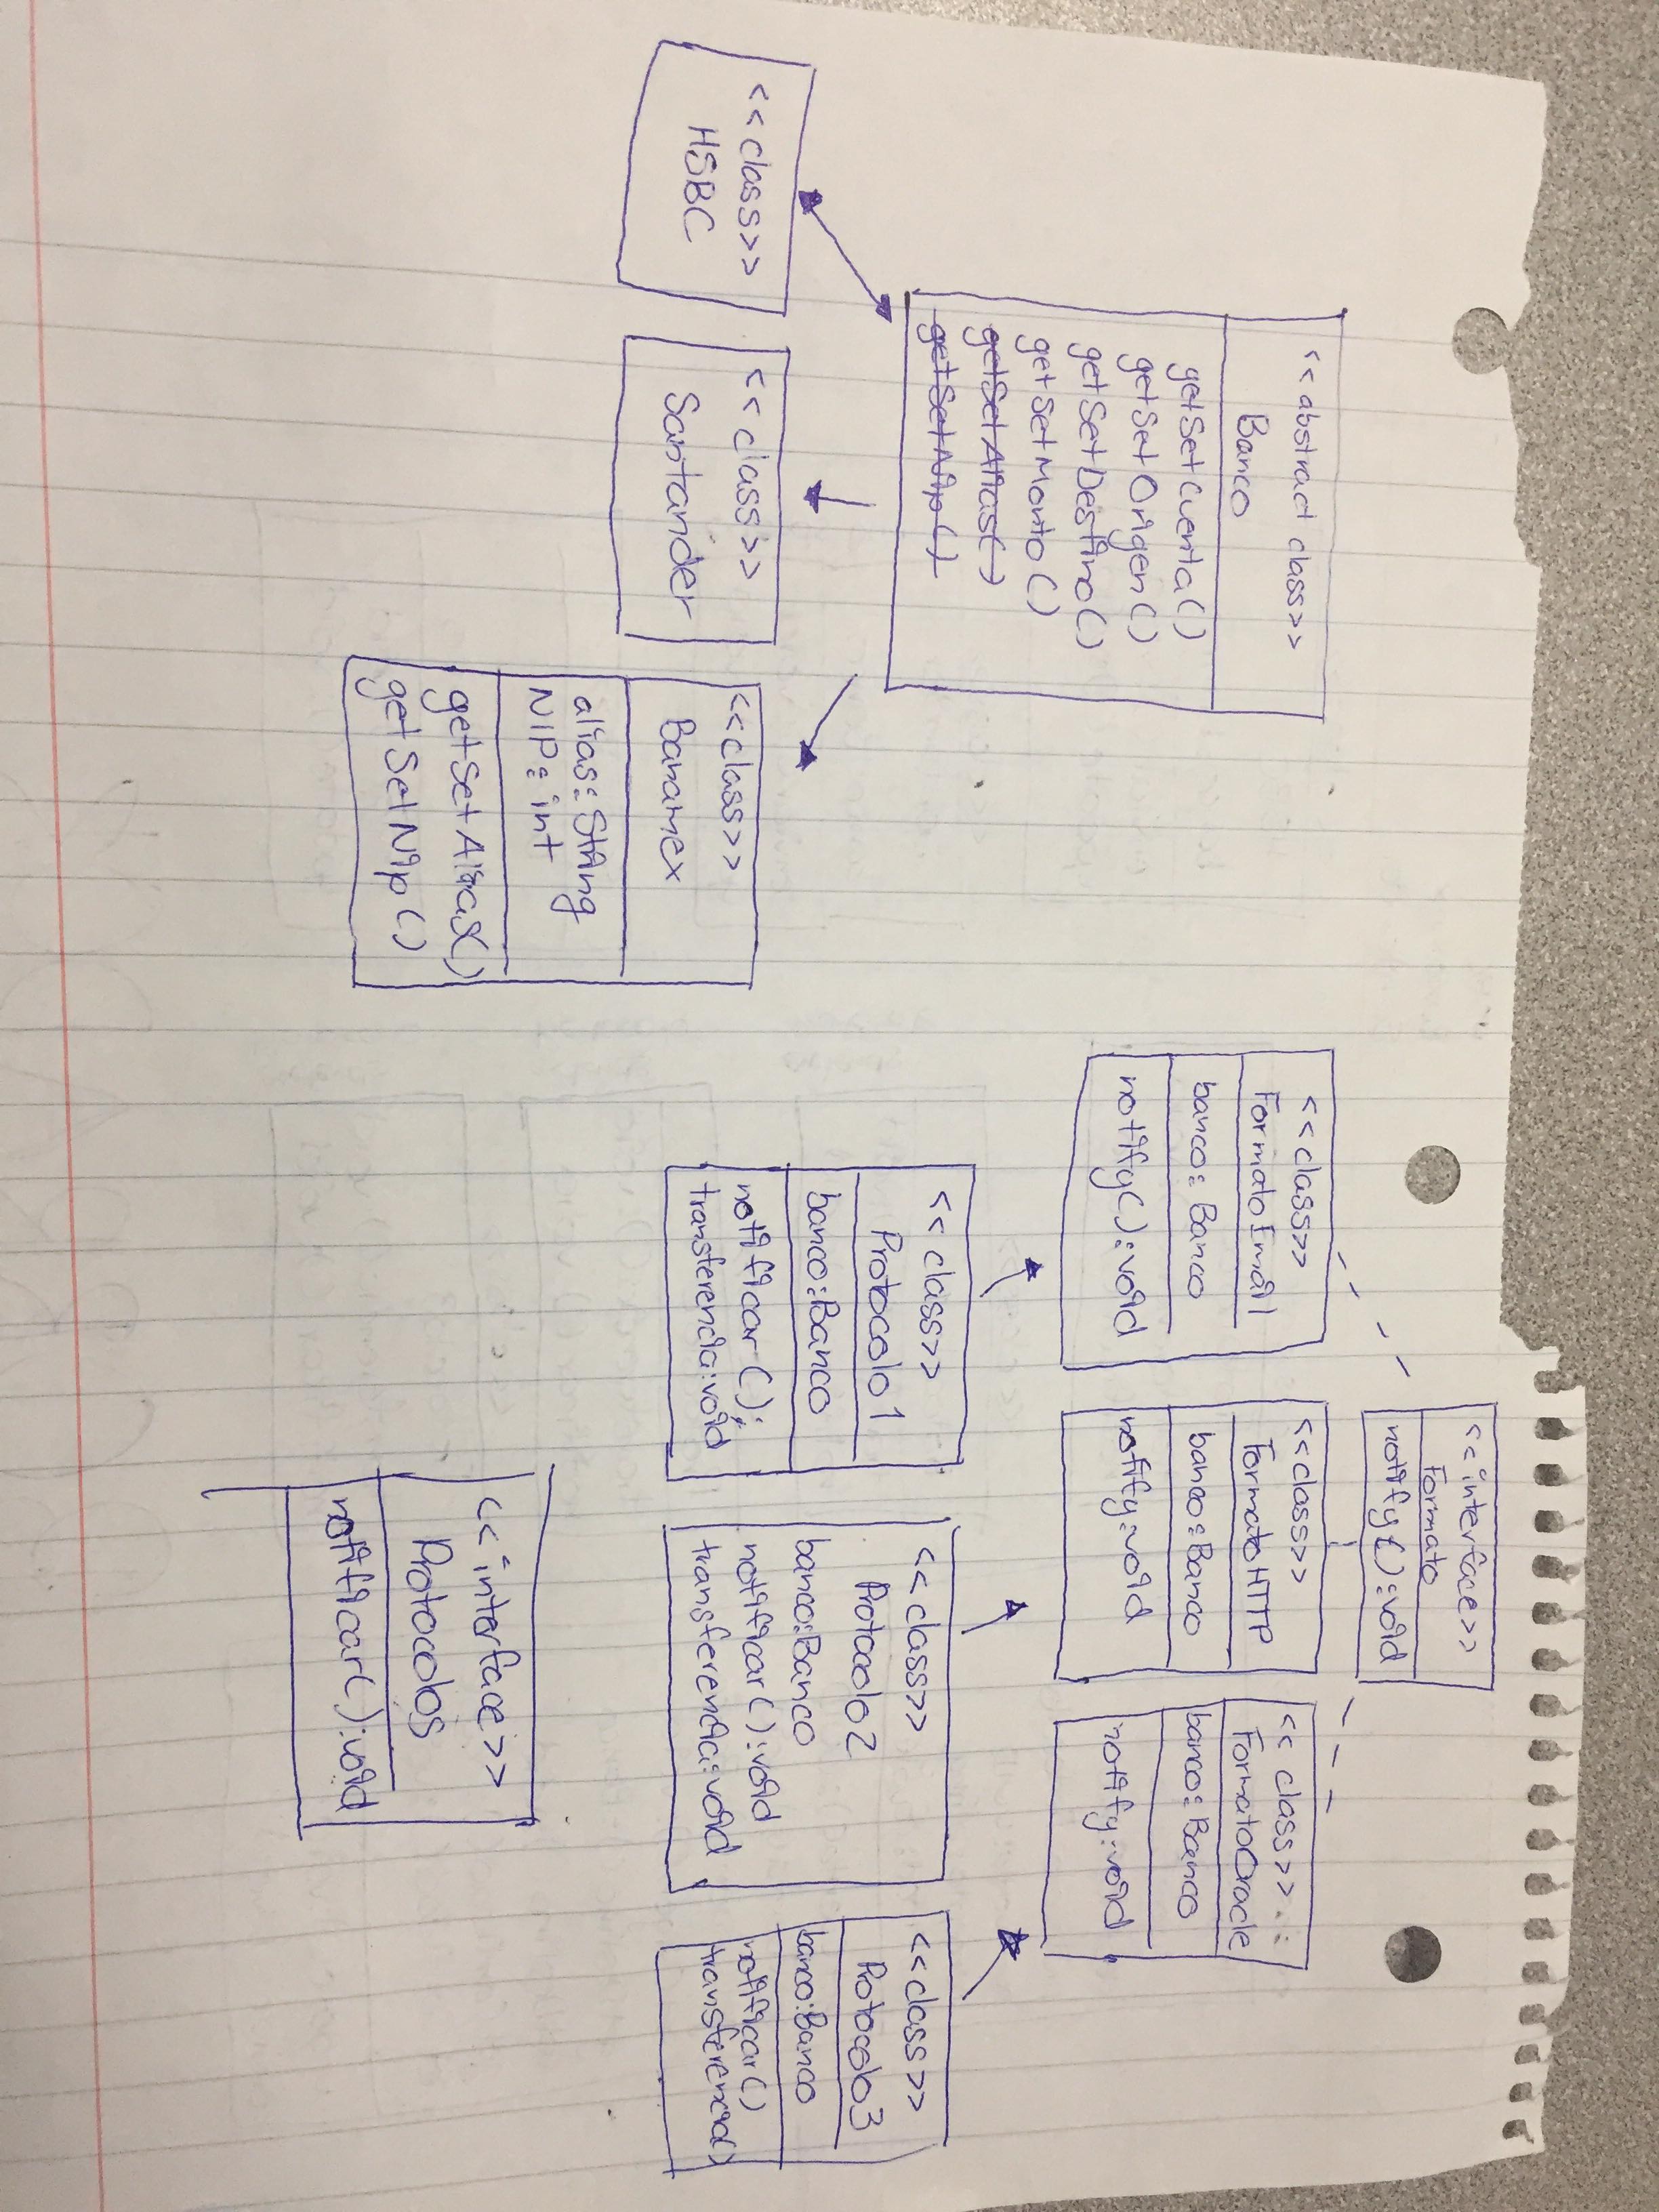 <<abstract class>>
Banco
getSetCuenta()
getSetOrigen()
getSetDestino()
getSetMonto()
getSetAlias()
getSetNip()
<<class>>
HSBC
<<class>>
Santander
<<class>>
Banamex
alias: String
NIP: int
getSetAlias()
getSetNip()
<<interface>>
Formato
notify():void
<<class>>
FormatoEmail
banco: Banco
notify():void
<<class>>
FormatoHTTP
banco: Banco
notify:void
<<class>>
FormatoOracle
banco: Banco
notify:void
<<class>>
Protocolo1
banco:Banco
notificar();
transferencia:void
<<class>>
Protocolo2
banco:Banco
notificar():void
transferencia:void
<<class>>
Protocolo3
banco:Banco
notificar()
transferencia()
<<interface>>
Protocolos
notificar():void